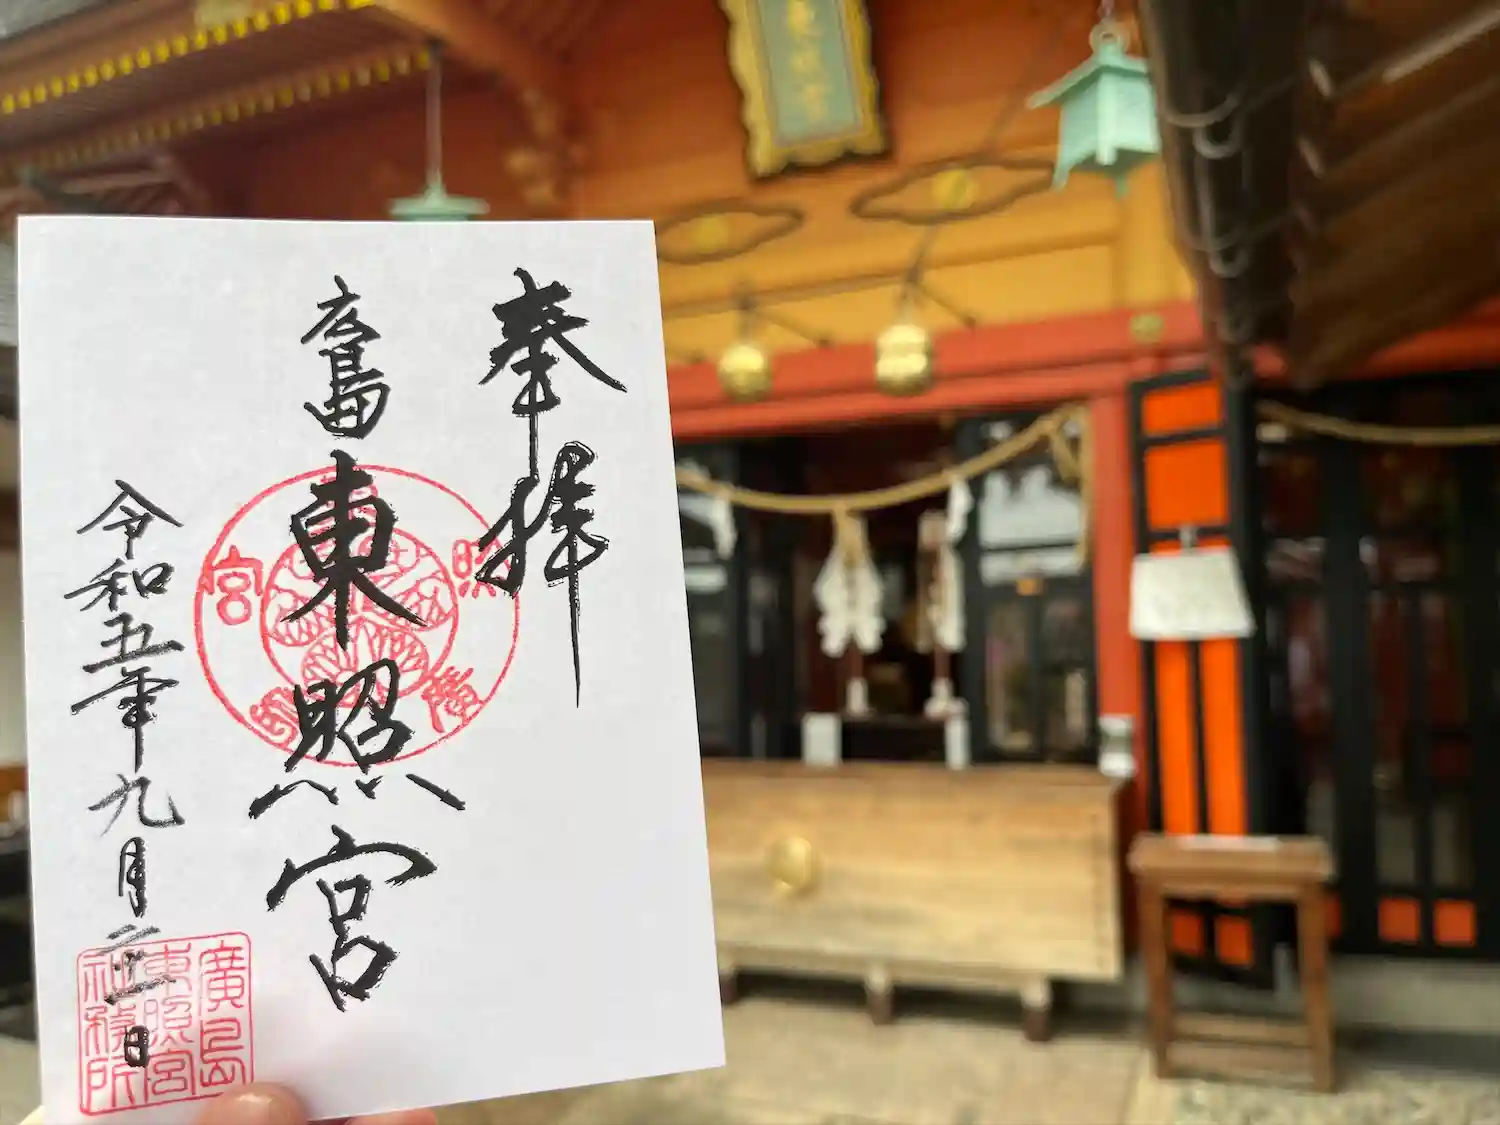 奉拝
広島東照宮
令和五年九月二十一日
廣島東照宮
廣島
東照宮
社務所